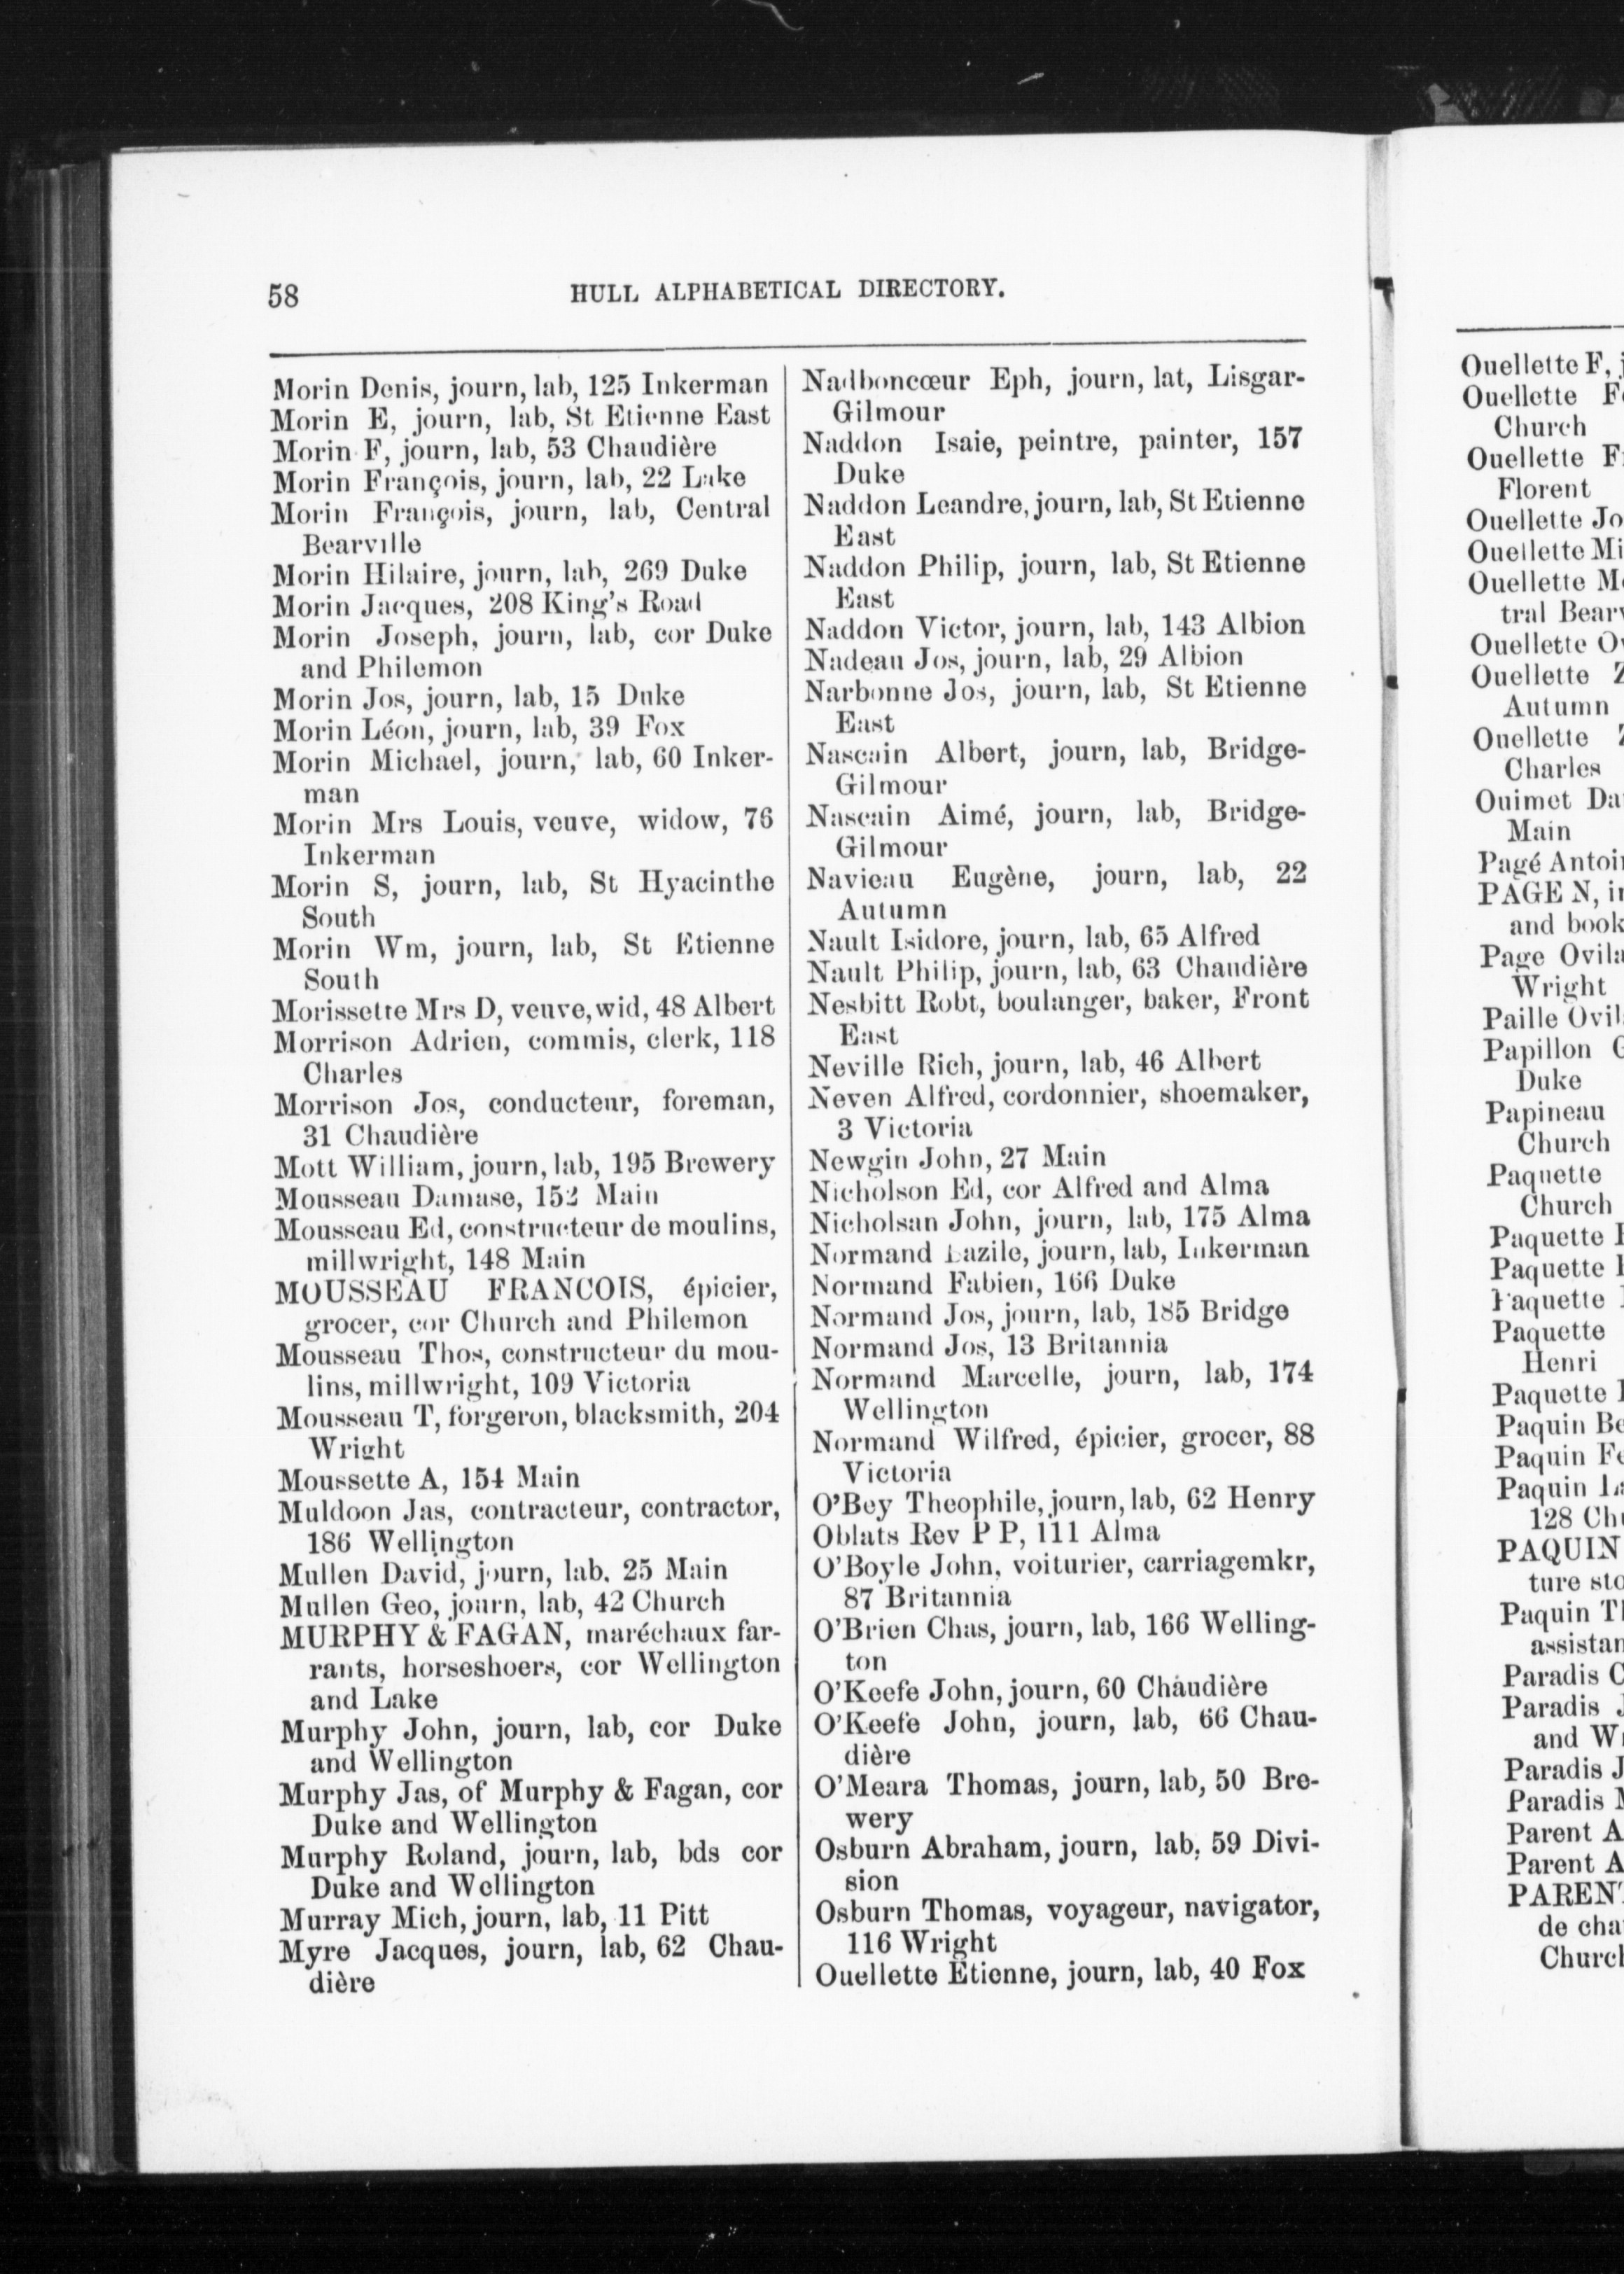 58
HULL ALPHABETICAL DIRECTORY.
Morin Denis, journ, lab, 125 Inkerman
Morin E, journ, lab, St Etienne East
Morin F, journ, lab, 53 Chaudière
Morin François, journ, lab, 22 Lake
Morin François, journ, lab, Central
Bearville
Morin Hilaire, journ, lab, 269 Duke
Morin Jacques, 208 King's Road
Morin Joseph, journ, lab, cor Duke
and Philemon
Morin Jos, journ, lab, 15 Duke
Morin Léon, journ, lab, 39 Fox
Morin Michael, journ, lab, 60 Inker-
man
Morin Mrs Louis, veuve, widow, 76
Inkerman
Morin S, journ, lab, St Hyacinthe
South
Morin Wm, journ, lab, St Etienne
South
Morissette Mrs D, veuve, wid, 48 Albert
Morrison Adrien, commis, clerk, 118
Charles
Morrison Jos, conducteur, foreman,
31 Chaudière
Mott William, journ, lab, 195 Brewery
Mousseau Damase, 152 Main
Mousseau Ed, constructeur de moulins,
millwright, 148 Main
MOUSSEAU FRANCOIS, épicier,
grocer, cor Church and Philemon
Mousseau Thos, constructeur du mou-
lins, millwright, 109 Victoria
Mousseau T, forgeron, blacksmith, 204
Wright
Moussette A, 154 Main
Muldoon Jas, contracteur, contractor,
186 Wellington
Mullen David, journ, lab. 25 Main
Mullen Geo, journ, lab, 42 Church
MURPHY & FAGAN, maréchaux far-
rants, horseshoers, cor Wellington
and Lake
Murphy John, journ, lab, cor Duke
and Wellington
Murphy Jas, of Murphy & Fagan, cor
Duke and Wellington
Murphy Roland, journ, lab, bds cor
Duke and Wellington
Murray Mich, journ, lab, 11 Pitt
Myre Jacques, journ, lab, 62 Chau-
dière
Nadboncœur Eph, journ, lat, Lisgar-
Gilmour
Naddon Isaie, peintre, painter, 157
Duke
Naddon Leandre, journ, lab, St Etienne
East
Naddon Philip, journ, lab, St Etienne
East
Naddon Victor, journ, lab, 143 Albion
Nadeau Jos, journ, lab, 29 Albion
Narbonne Jos, journ, lab, St Etienne
East
Nascain Albert, journ, lab, Bridge-
Gilmour
Nascain Aimé, journ, lab, Bridge-
Gilmour
Navieau Eugène, journ, lab, 22
Autumn
Nault Isidore, journ, lab, 65 Alfred
Nault Philip, journ, lab, 63 Chaudière
Nesbitt Robt, boulanger, baker, Front
East
Neville Rich, journ, lab, 46 Albert
Neven Alfred, cordonnier, shoemaker,
3 Victoria
Newgin John, 27 Main
Nicholson Ed, cor Alfred and Alma
Nicholsan John, journ, lab, 175 Alma
Normand Lazile, journ, lab, Inkerman
Normand Fabien, 166 Duke
Normand Jos, journ, lab, 185 Bridge
Normand Jos, 13 Britannia
Normand Marcelle, journ, lab, 174
Wellington
Normand Wilfred, épicier, grocer, 88
Victoria
O'Bey Theophile, journ, lab, 62 Henry
Oblats Rev P P, 111 Alma
O'Boyle John, voiturier, carriagemkr,
87 Britannia
O'Brien Chas, journ, lab, 166 Welling-
ton
O'Keefe John, journ, 60 Chaudière
O'Keefe John, journ, lab, 66 Chau-
dière
O'Meara Thomas, journ, lab, 50 Bre-
wery
Osburn Abraham, journ, lab, 59 Divi-
sion
Osburn Thomas, voyageur, navigator,
116 Wright
Ouellette Etienne, journ, lab, 40 Fox
Ouellette F,
Ouellette
Church
Ouellette
Florent
Ouellette Jo
Ouellette Mi
Ouellette
tral
Ouellette
Ouellette
Autumn
Ouellette
Charles
Ouimet
Main
Pagé
PAGE N,
and book
Page
Wright
Paille
Papillon
Duke
Papineau
Church
Paquette
Church
Paquette
Paquette
Paquette
Paquette
Henri
Paquette
Paquin
Paquin
Paquin
128
PAQUIN
ture
Paquin
Paradis
Paradis
and
Paradis
Paradis
Parent
Parent
de